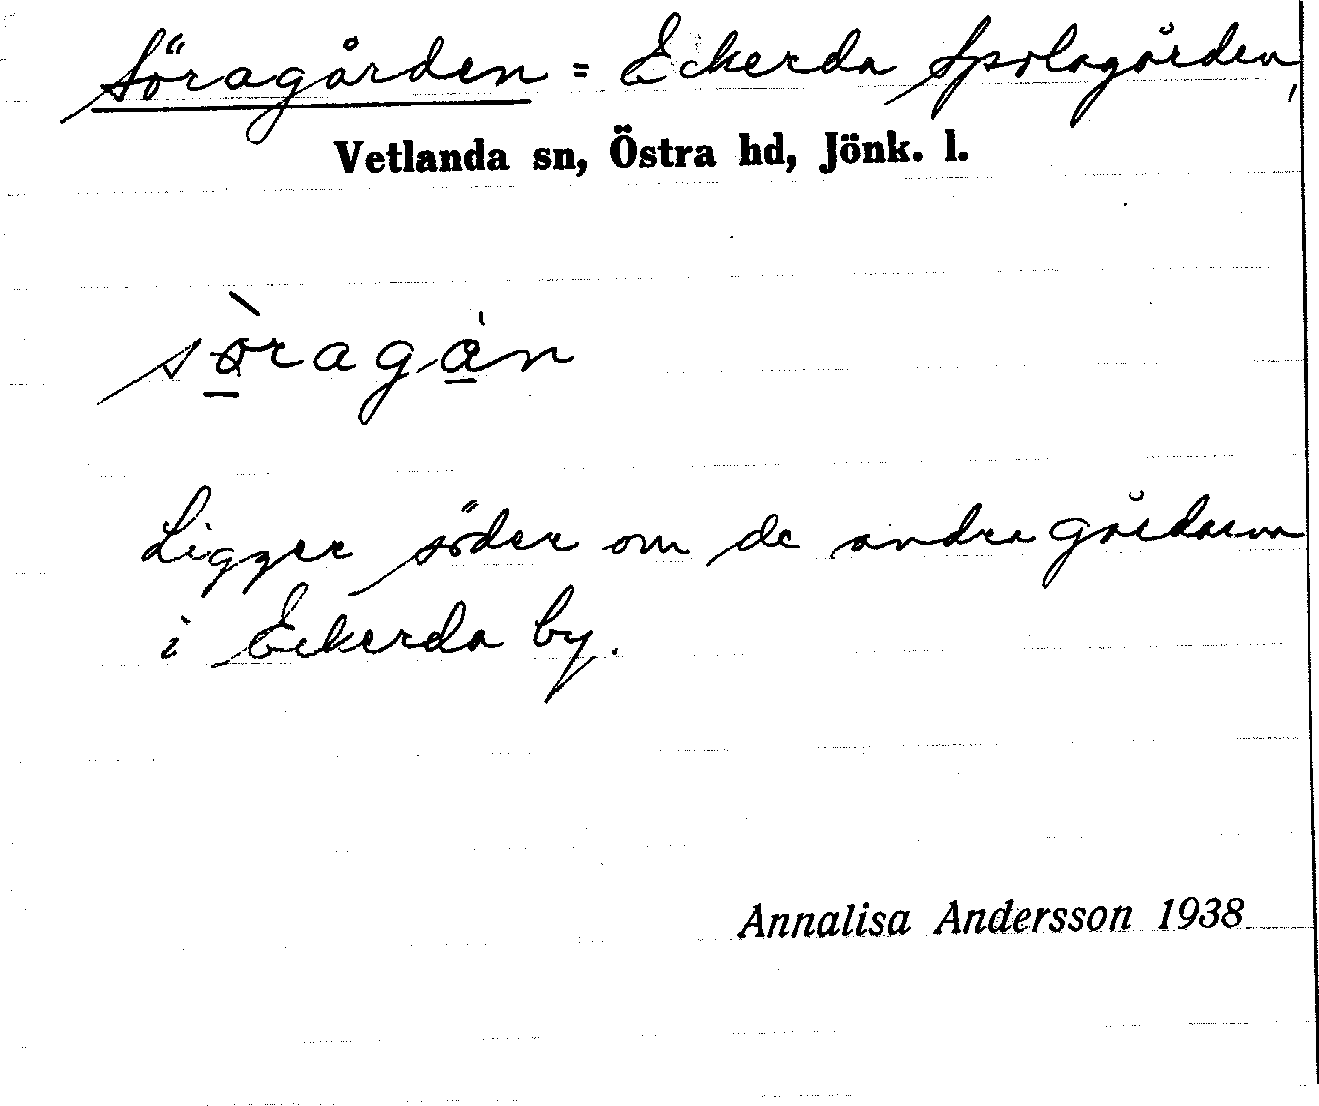 Söragården = Eckerda Spolagården,
Vetlanda sn, Östra hd, Jönk. l.
sö̀ragán
Ligger söder om de andra gårdarna
i Eckerda by.
Annalisa Andersson 1938